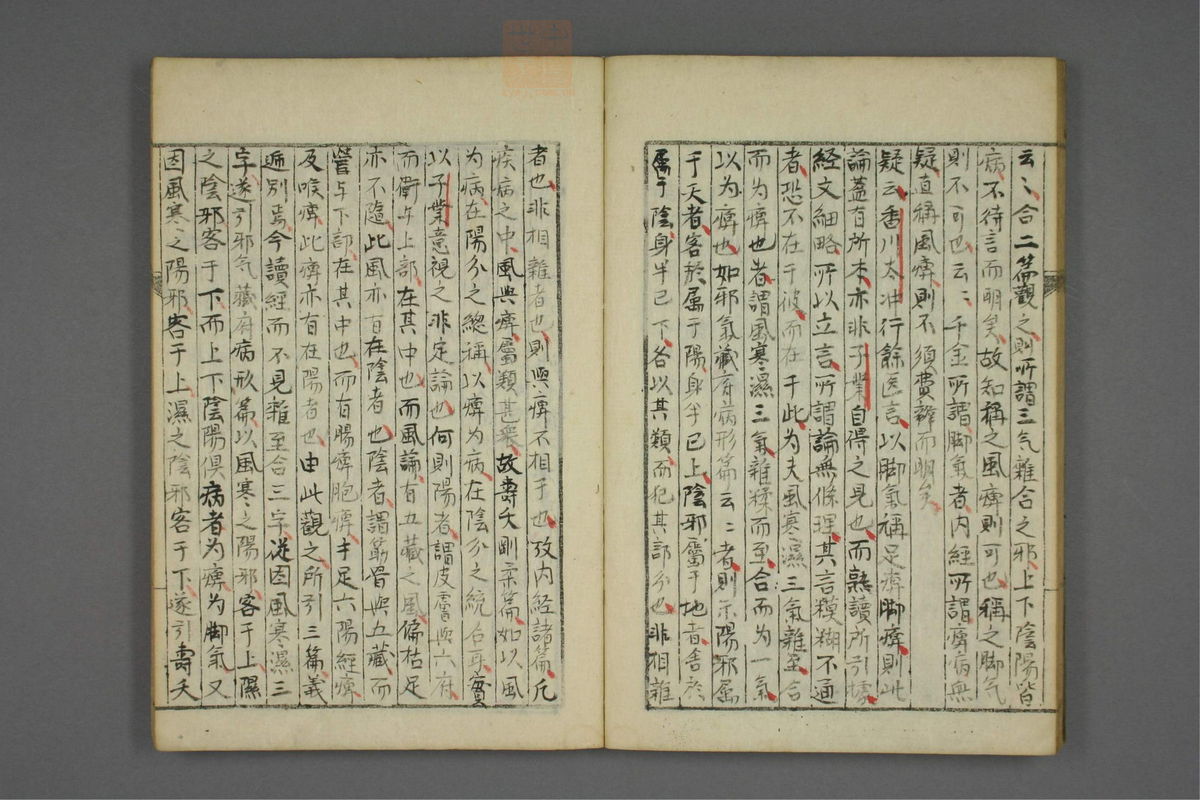 云〻合二篇觀之則所謂三气雜合之邪上下陰陽皆
病不待言而明矣故知稱之風痺則可也稱之脚气
則不可也云〻千金所謂脚氣者内經所謂痺病無
疑直稱風痺則不須費辯而明矣
疑云香川太冲行餘医言以脚氣稱足痺脚痺則此
論蓋有所本亦非子業自得之見也而熟讀所引據
経文細略所以立言所謂論無條理其言糢糊不通
者恐不在于彼而在于此為夫風寒濕三氣雜至合
而為痺也者謂風寒濕三氣雜糅而至合而為一氣
以為痺也如邪氣藏府病形篇云〻者則示陽邪属
于天者客於属于陽身半已上陰邪屬于地者舎於
属于陰身半已下各以其類而犯其部分也非相雜
者也非相雜者也則與痺不相干也攷内経諸篇凡
疾病之中風與痺屬類甚衆故壽夭剛柔篇如以風
为病在陽分之總稱以痺为病在陰分之統名耳實
以子業意視之非定論也何則陽者謂皮膚與六府
而衛与上部在其中也而風論有五藏之風偏枯足
亦不隨此風亦有在陰者也陰者謂筋骨與五藏而
營与下部在其中也而有腸痺胞痺手足六陽經痺
及喉痺此痺亦有在陽者也由此觀之所引三篇義
逓別焉今讀經而不見雜至合三字從因風寒濕三
字遂引邪気藏府病形篇以風寒之陽邪客于上濕
之陰邪客于下而上下陰陽俱病者为痺为脚気又
因風寒之陽邪客于上濕之陰邪客于下遂引壽夭